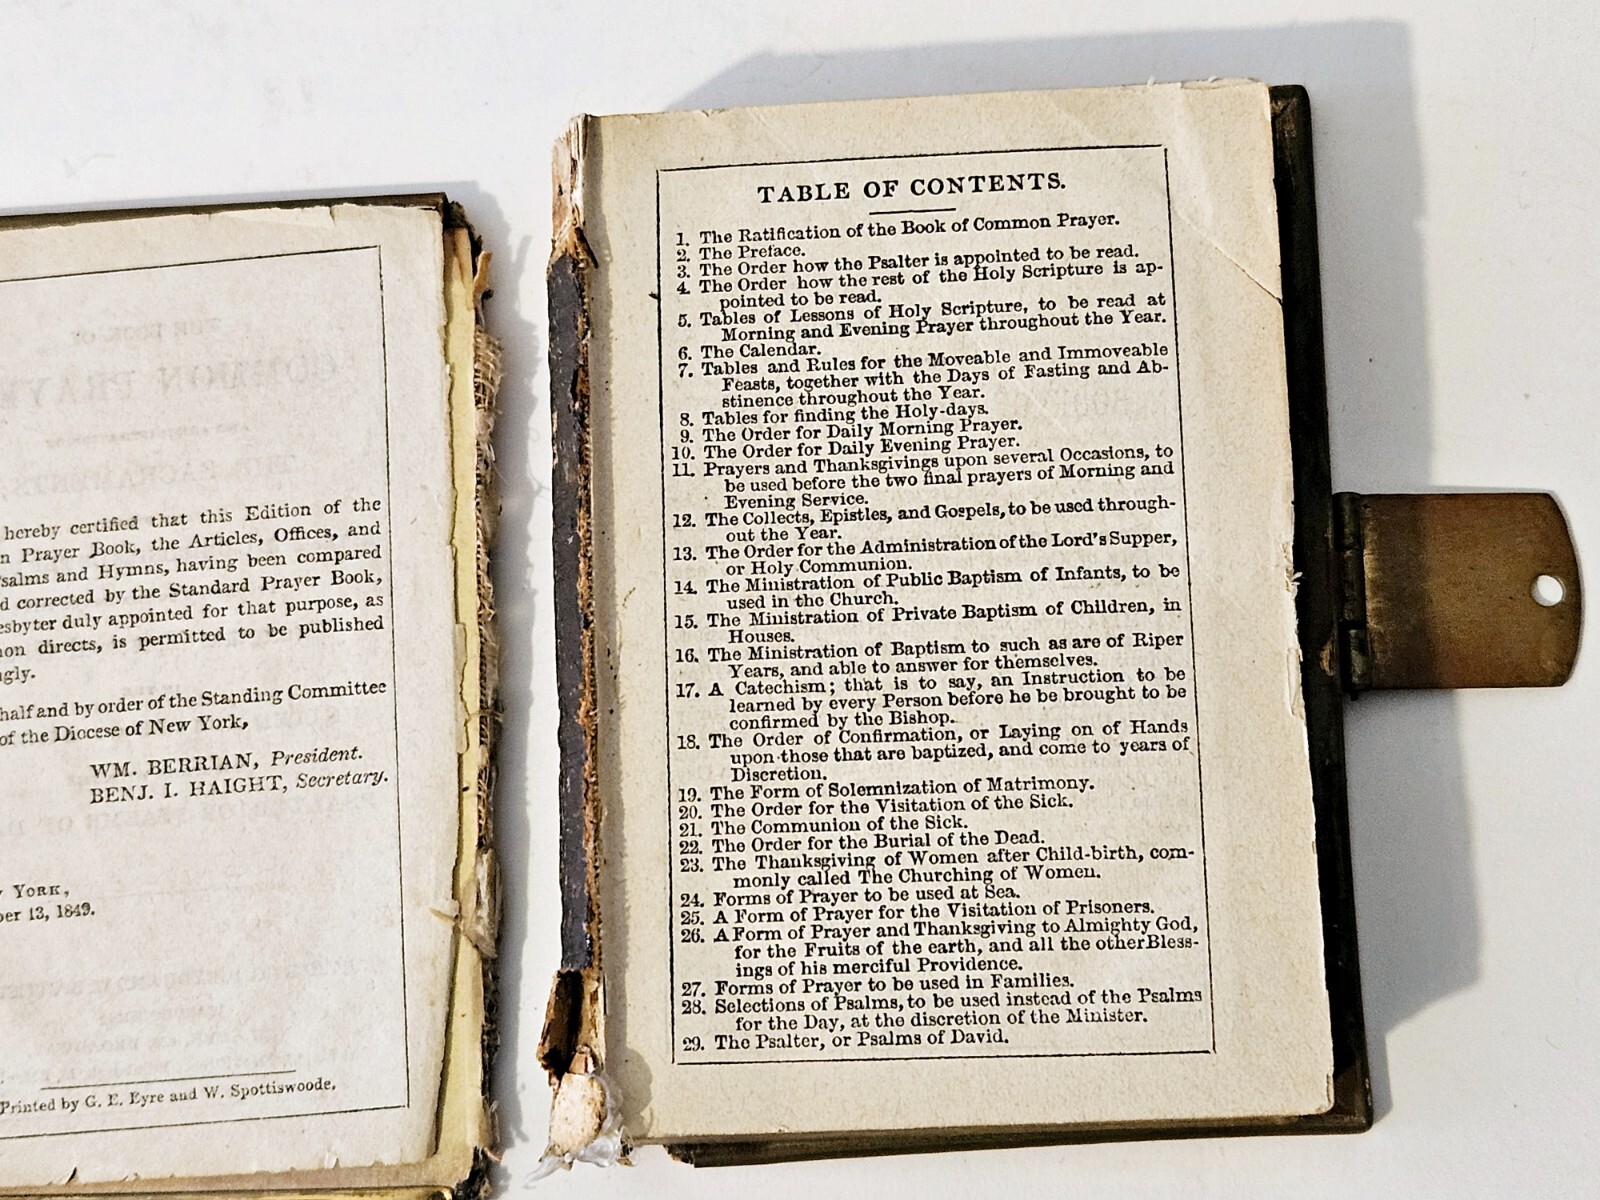 hereby certified that this Edition of the
n Prayer Book, the Articles, Offices, and
salms and Hymns, having been compared
d corrected by the Standard Prayer Book,
esbyter duly appointed for that purpose, as
on directs, is permitted to be published
gly.
half and by order of the Standing Committee
of the Diocese of New York,
WM. BERRIAN, President.
BENJ. I. HAIGHT, Secretary.
YORK,
ber 13, 1849.
Printed by G. E. Eyre and W. Spottiswoode.
TABLE OF CONTENTS.
1. The Ratification of the Book of Common Prayer.
2. The Preface.
3. The Order how the Psalter is appointed to be read.
4. The Order how the rest of the Holy Scripture is ap-
pointed to be read.
5. Tables of Lessons of Holy Scripture, to be read at
Morning and Evening Prayer throughout the Year.
6. The Calendar.
7. Tables and Rules for the Moveable and Immoveable
Feasts, together with the Days of Fasting and Ab-
stinence throughout the Year.
8. Tables for finding the Holy-days.
9. The Order for Daily Morning Prayer.
10. The Order for Daily Evening Prayer.
11. Prayers and Thanksgivings upon several Occasions, to
be used before the two final prayers of Morning and
Evening Service.
12. The Collects, Epistles, and Gospels, to be used through-
out the Year.
13. The Order for the Administration of the Lord's Supper,
or Holy Communion.
14. The Ministration of Public Baptism of Infants, to be
used in the Church.
15. The Ministration of Private Baptism of Children, in
Houses.
16. The Ministration of Baptism to such as are of Riper
Years, and able to answer for themselves.
17. A Catechism; that is to say, an Instruction to be
learned by every Person before he be brought to be
confirmed by the Bishop.
18. The Order of Confirmation, or Laying on of Hands
upon those that are baptized, and come to years of
Discretion.
19. The Form of Solemnization of Matrimony.
20. The Order for the Visitation of the Sick.
21. The Communion of the Sick.
22. The Order for the Burial of the Dead.
23. The Thanksgiving of Women after Child-birth, com-
monly called The Churching of Women.
24. Forms of Prayer to be used at Sea.
25. A Form of Prayer for the Visitation of Prisoners.
26. A Form of Prayer and Thanksgiving to Almighty God,
for the Fruits of the earth, and all the other Bless-
ings of his merciful Providence.
27. Forms of Prayer to be used in Families.
28. Selections of Psalms, to be used instead of the Psalms
for the Day, at the discretion of the Minister.
29. The Psalter, or Psalms of David.